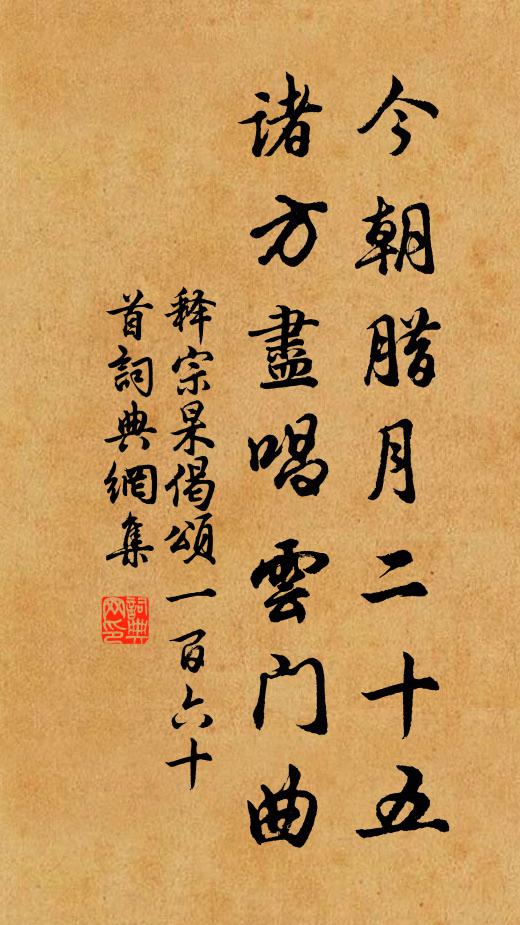 今朝腊月二十五
諸方盡唱雲門曲
释宗杲偈頌一百六十
首詞典網集
詞典
网印